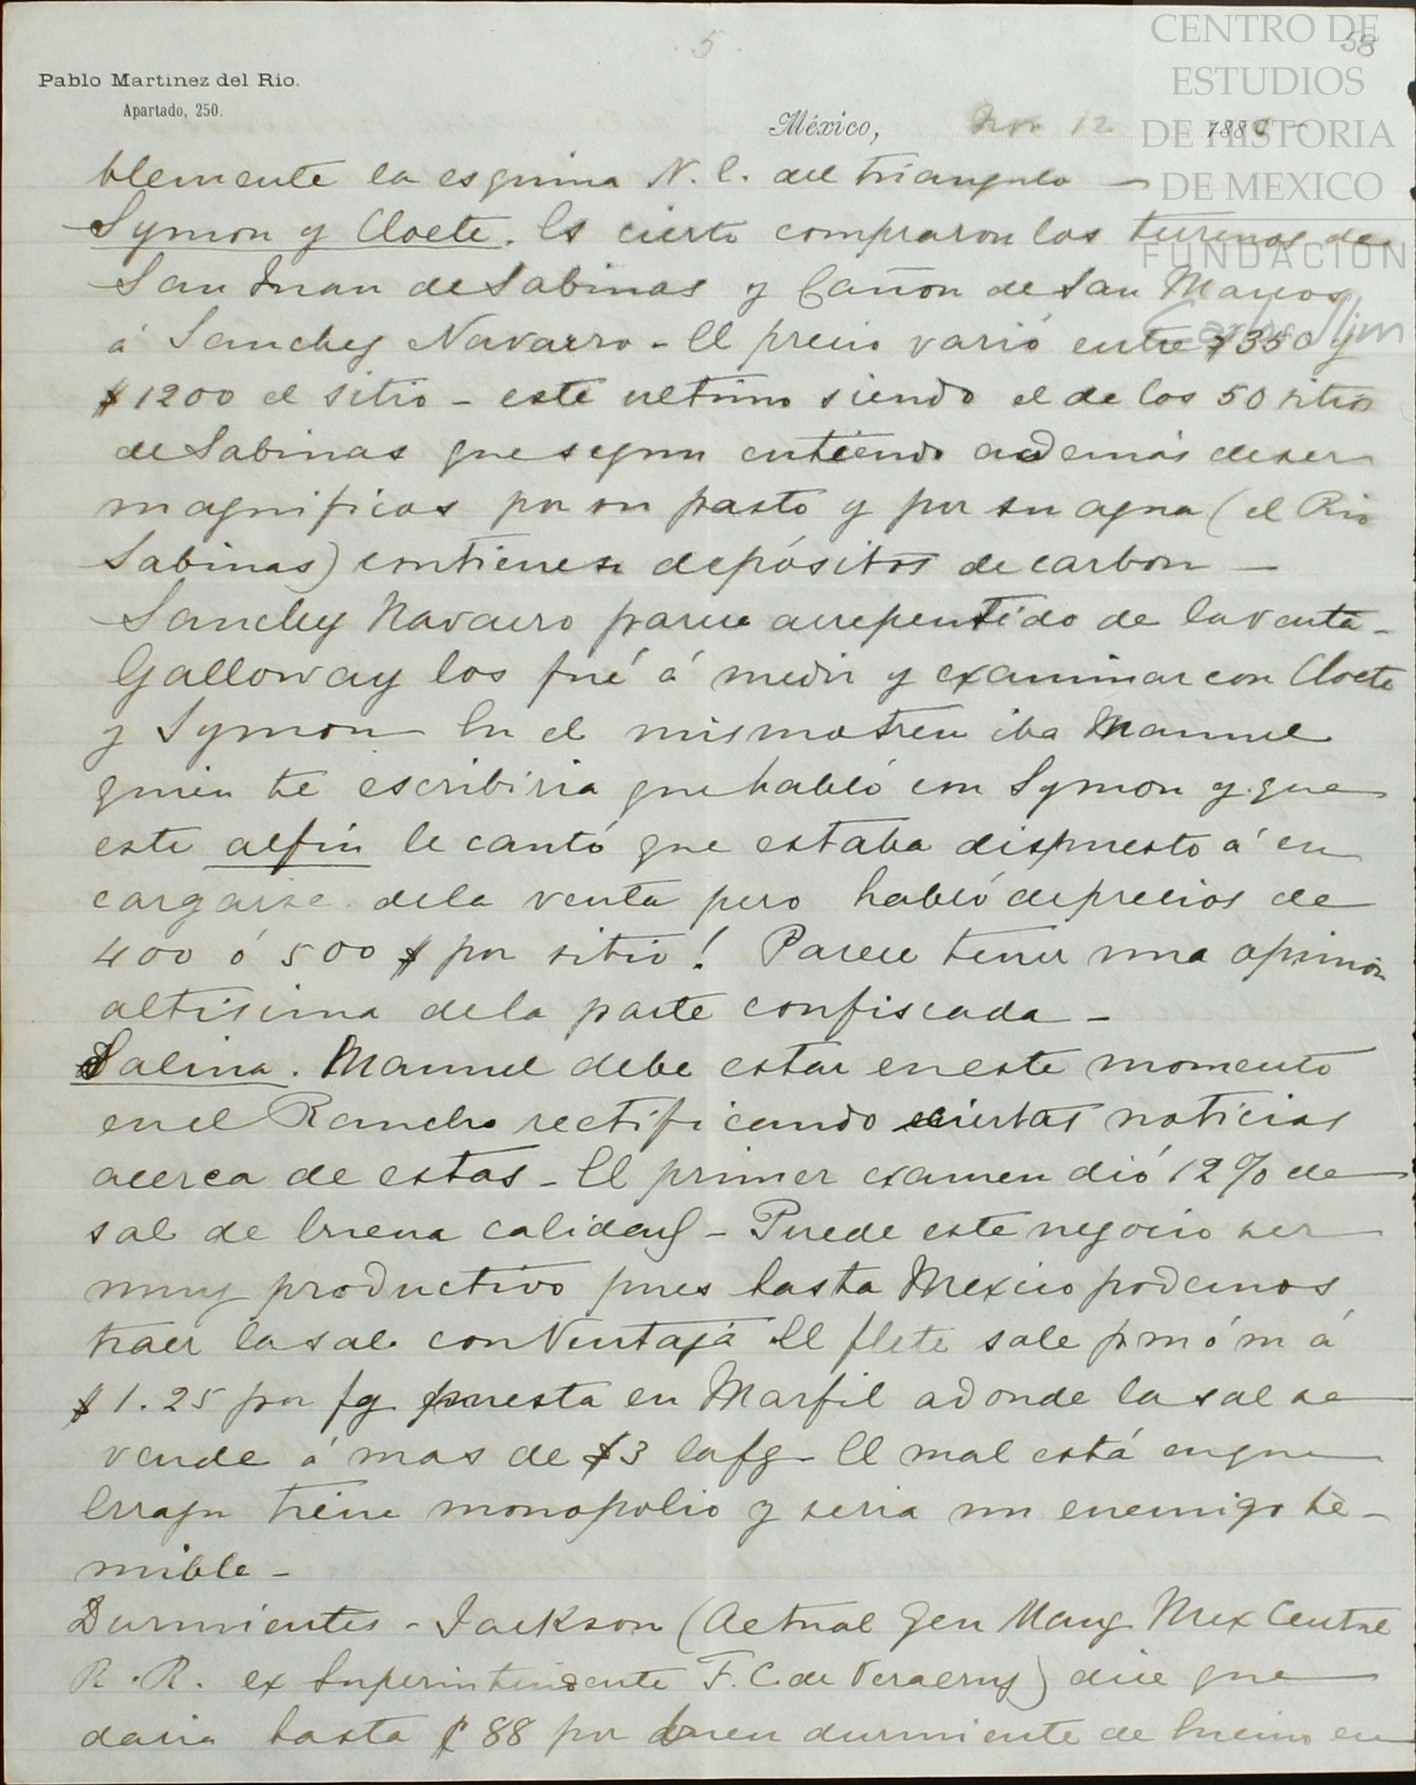 5
58
CENTRO DE
ESTUDIOS
DE HISTORIA
DE MEXICO
FUNDACIÓN
Carlos Slim
Pablo Martinez del Rio.
Apartado, 250.
México, Nov 12 188
blemente la esquina N. E. del triangulo —
Symon y Cloete. Es cierto compraron los terrenos de
San Juan de Sabinas y Cañon de San Marcos
á Sanchez Navarro - El precio varió entre $350 y
$1200 el sitio - este ultimo siendo el de los 50 sitios
de Sabinas que segun entiendo además de ser
magnificos por su pasto y por su agua (el Rio
Sabinas) contienen depósitos de carbon —
Sanchez Navarro parece arrepentido de la venta -
Galloway los fué á medir y examinar con Cloete
y Symon En el mismo tren iba Manuel
quien te escribiria que habló con Symon y que
este alfin le cantó que estaba dispuesto á en
cargarse de la venta pero habló de precios de
400 ó 500 $ por sitio! Parece tener una opinion
altisima de la parte confiscada -
Salina. Manuel debe estar en este momento
en el Rancho rectificando ciertas noticias
acerca de estas - El primer examen dió 12% de
sal de buena calidad - Puede este negocio ser
muy productivo pues hasta Mexico podemos
traer la sal con ventaja El flete sale pm ó m á
$1.25 por fg puesta en Marfil adonde la sal se
vende á mas de $3 la fg - El mal está en que
Errazu tiene monopolio y seria un enemigo te-
mible -
Durmientes - Jackson (Actual Gen Mang Mex Central
R. R. ex Superintendente F. C. de Veracruz) dice que
daria hasta ¢ 88 por buen durmiente de bueno en